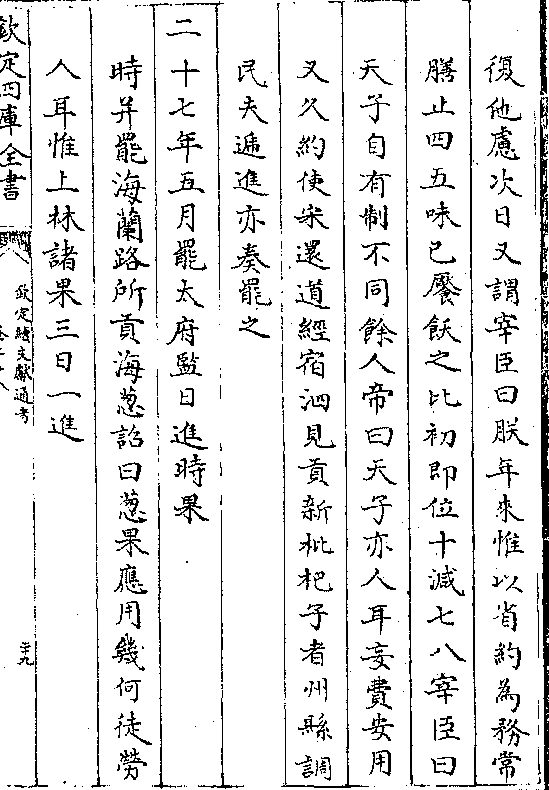 復他慮次日又謂宰臣曰朕年來惟以省約為務常
膳止四五味已饜飫之比初即位十減七八宰臣曰
天子自有制不同餘人帝曰天子亦人耳妄費安用
又久約使宋還道經宿泗見貢新枇杷子者州縣調
民夫遞進亦奏罷之
二十七年五月罷太府監日進時果
時并罷海蘭路所貢海葱詔曰葱果應用幾何徒勞
人耳惟上林諸果三日一進
欽定四庫全書
欽定續文獻通考